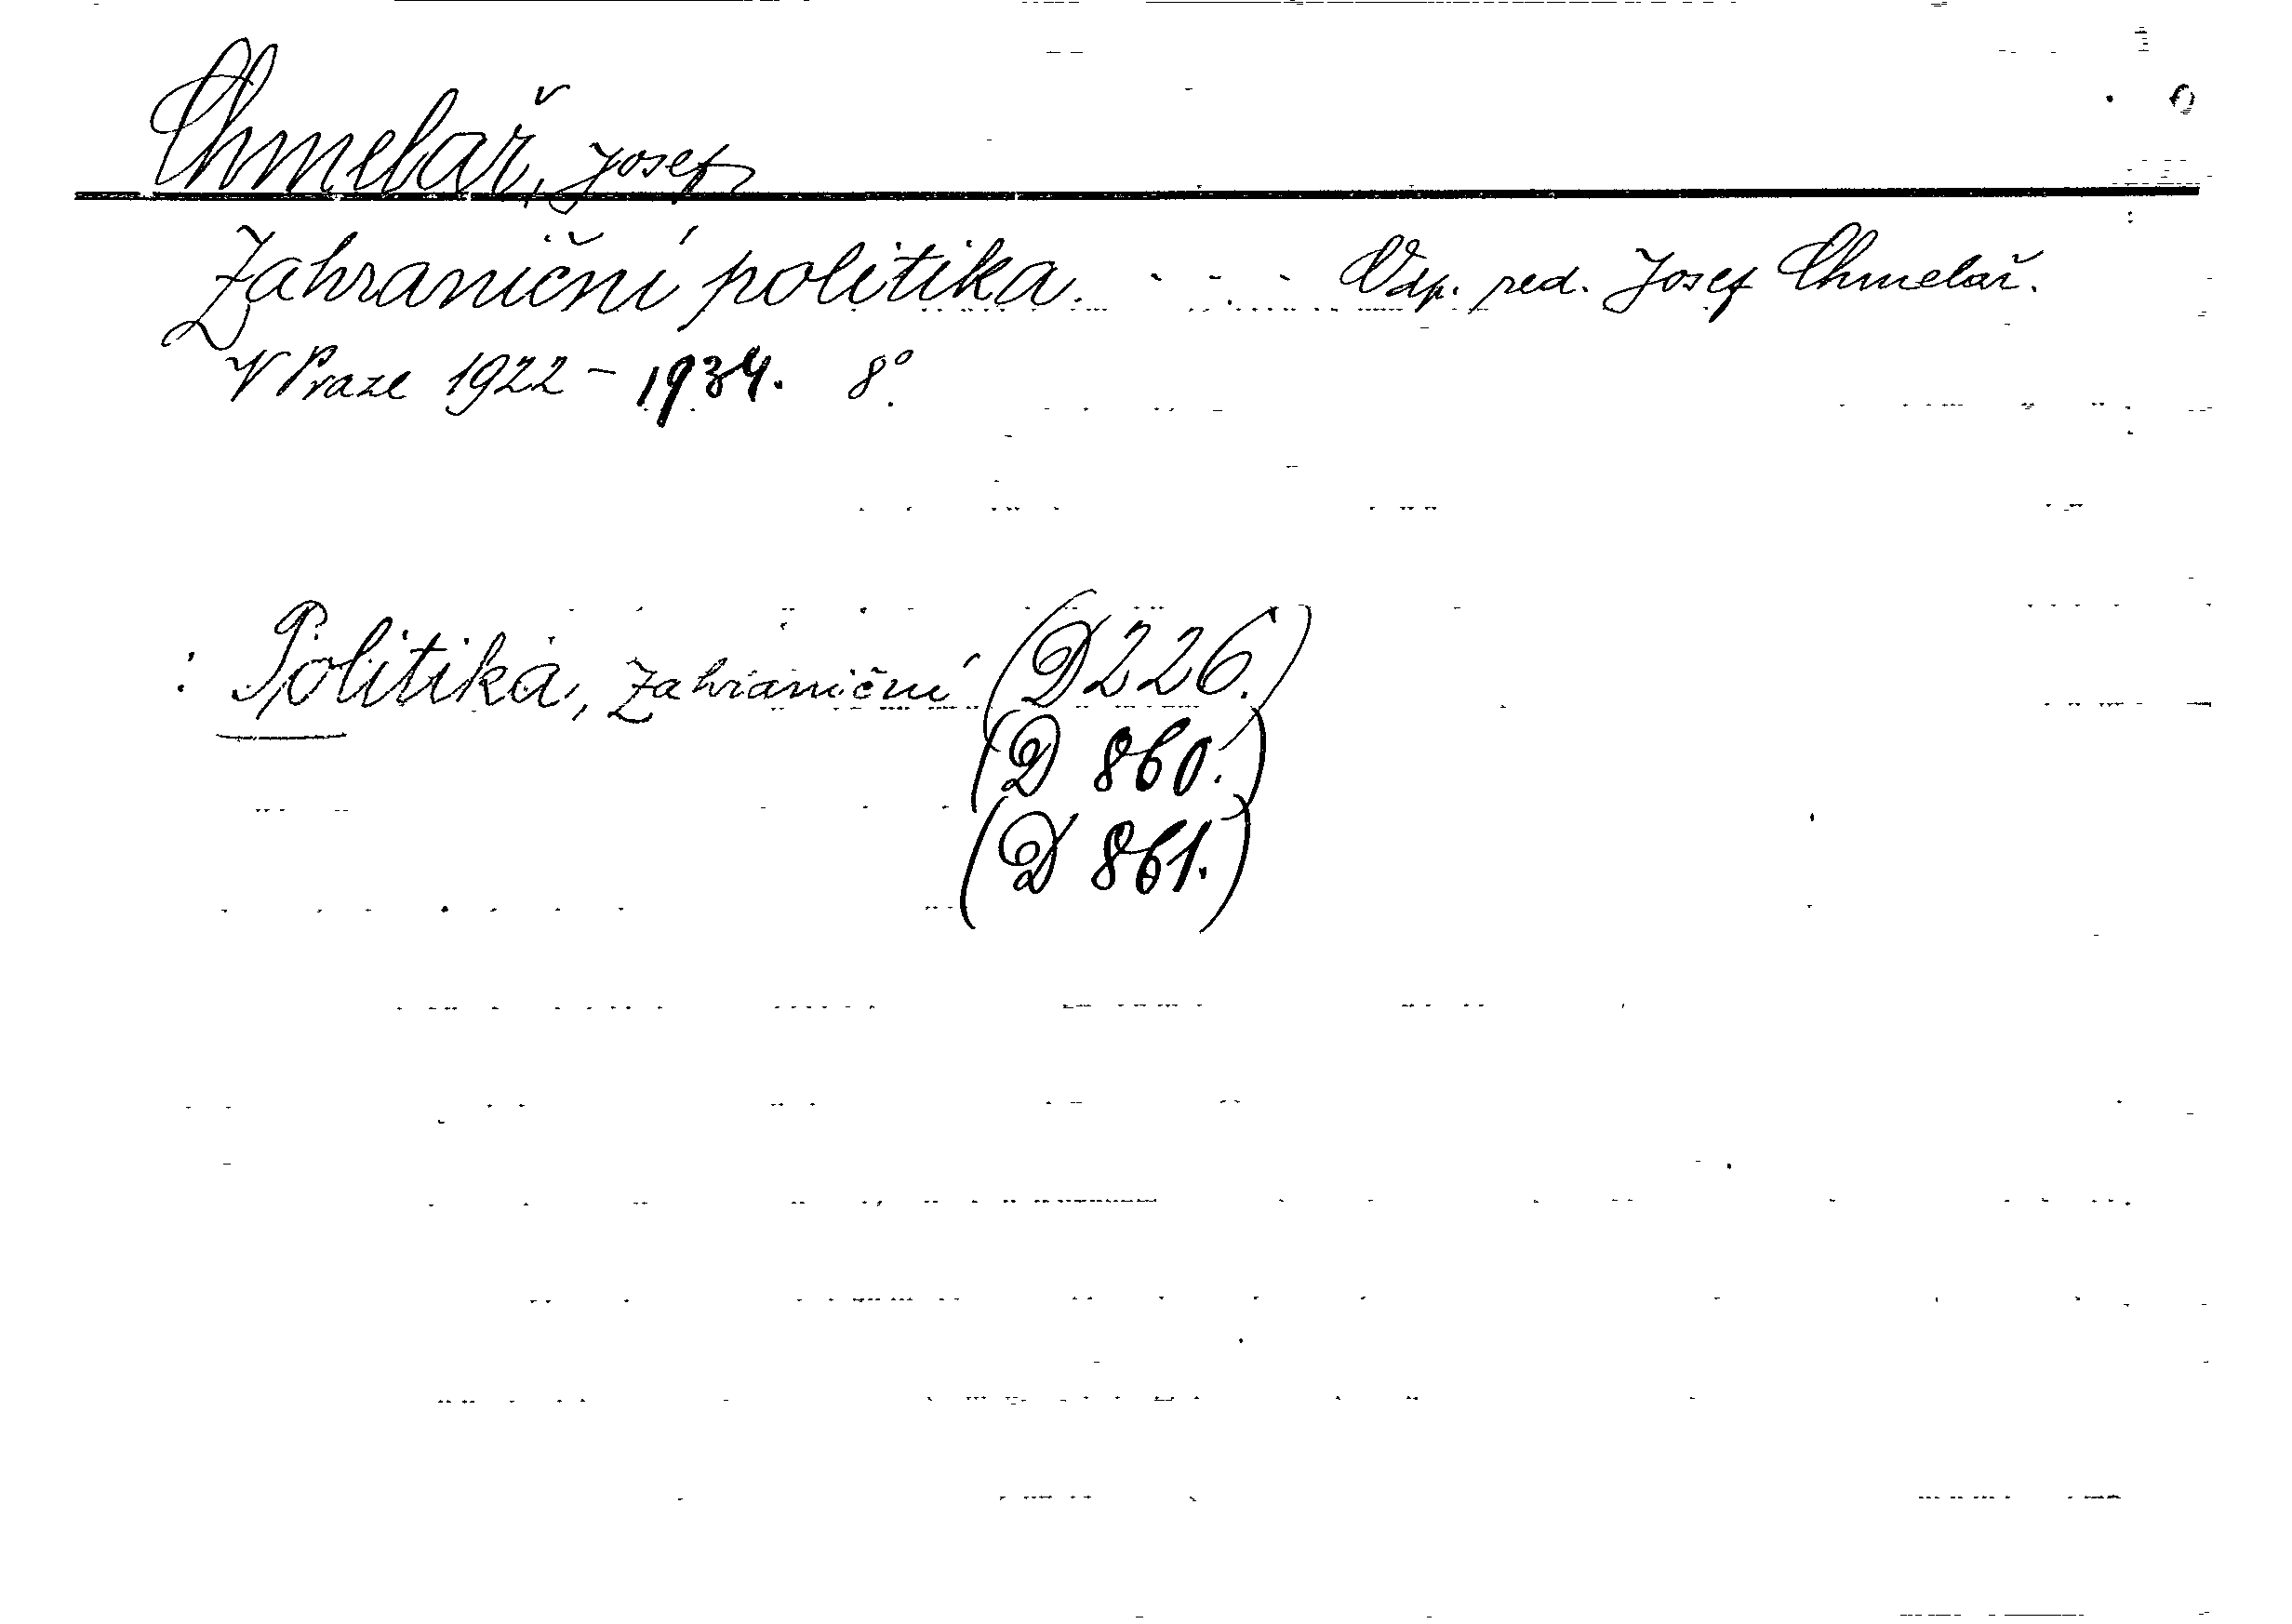 Chmelař, Josef
Zahraniční politika. - - - Odp. red. Josef Chmelař.
V Praze 1922 - 1934. 8°.
: Politika, zahraniční (D 226.)
(D 860.)
(D 861.)